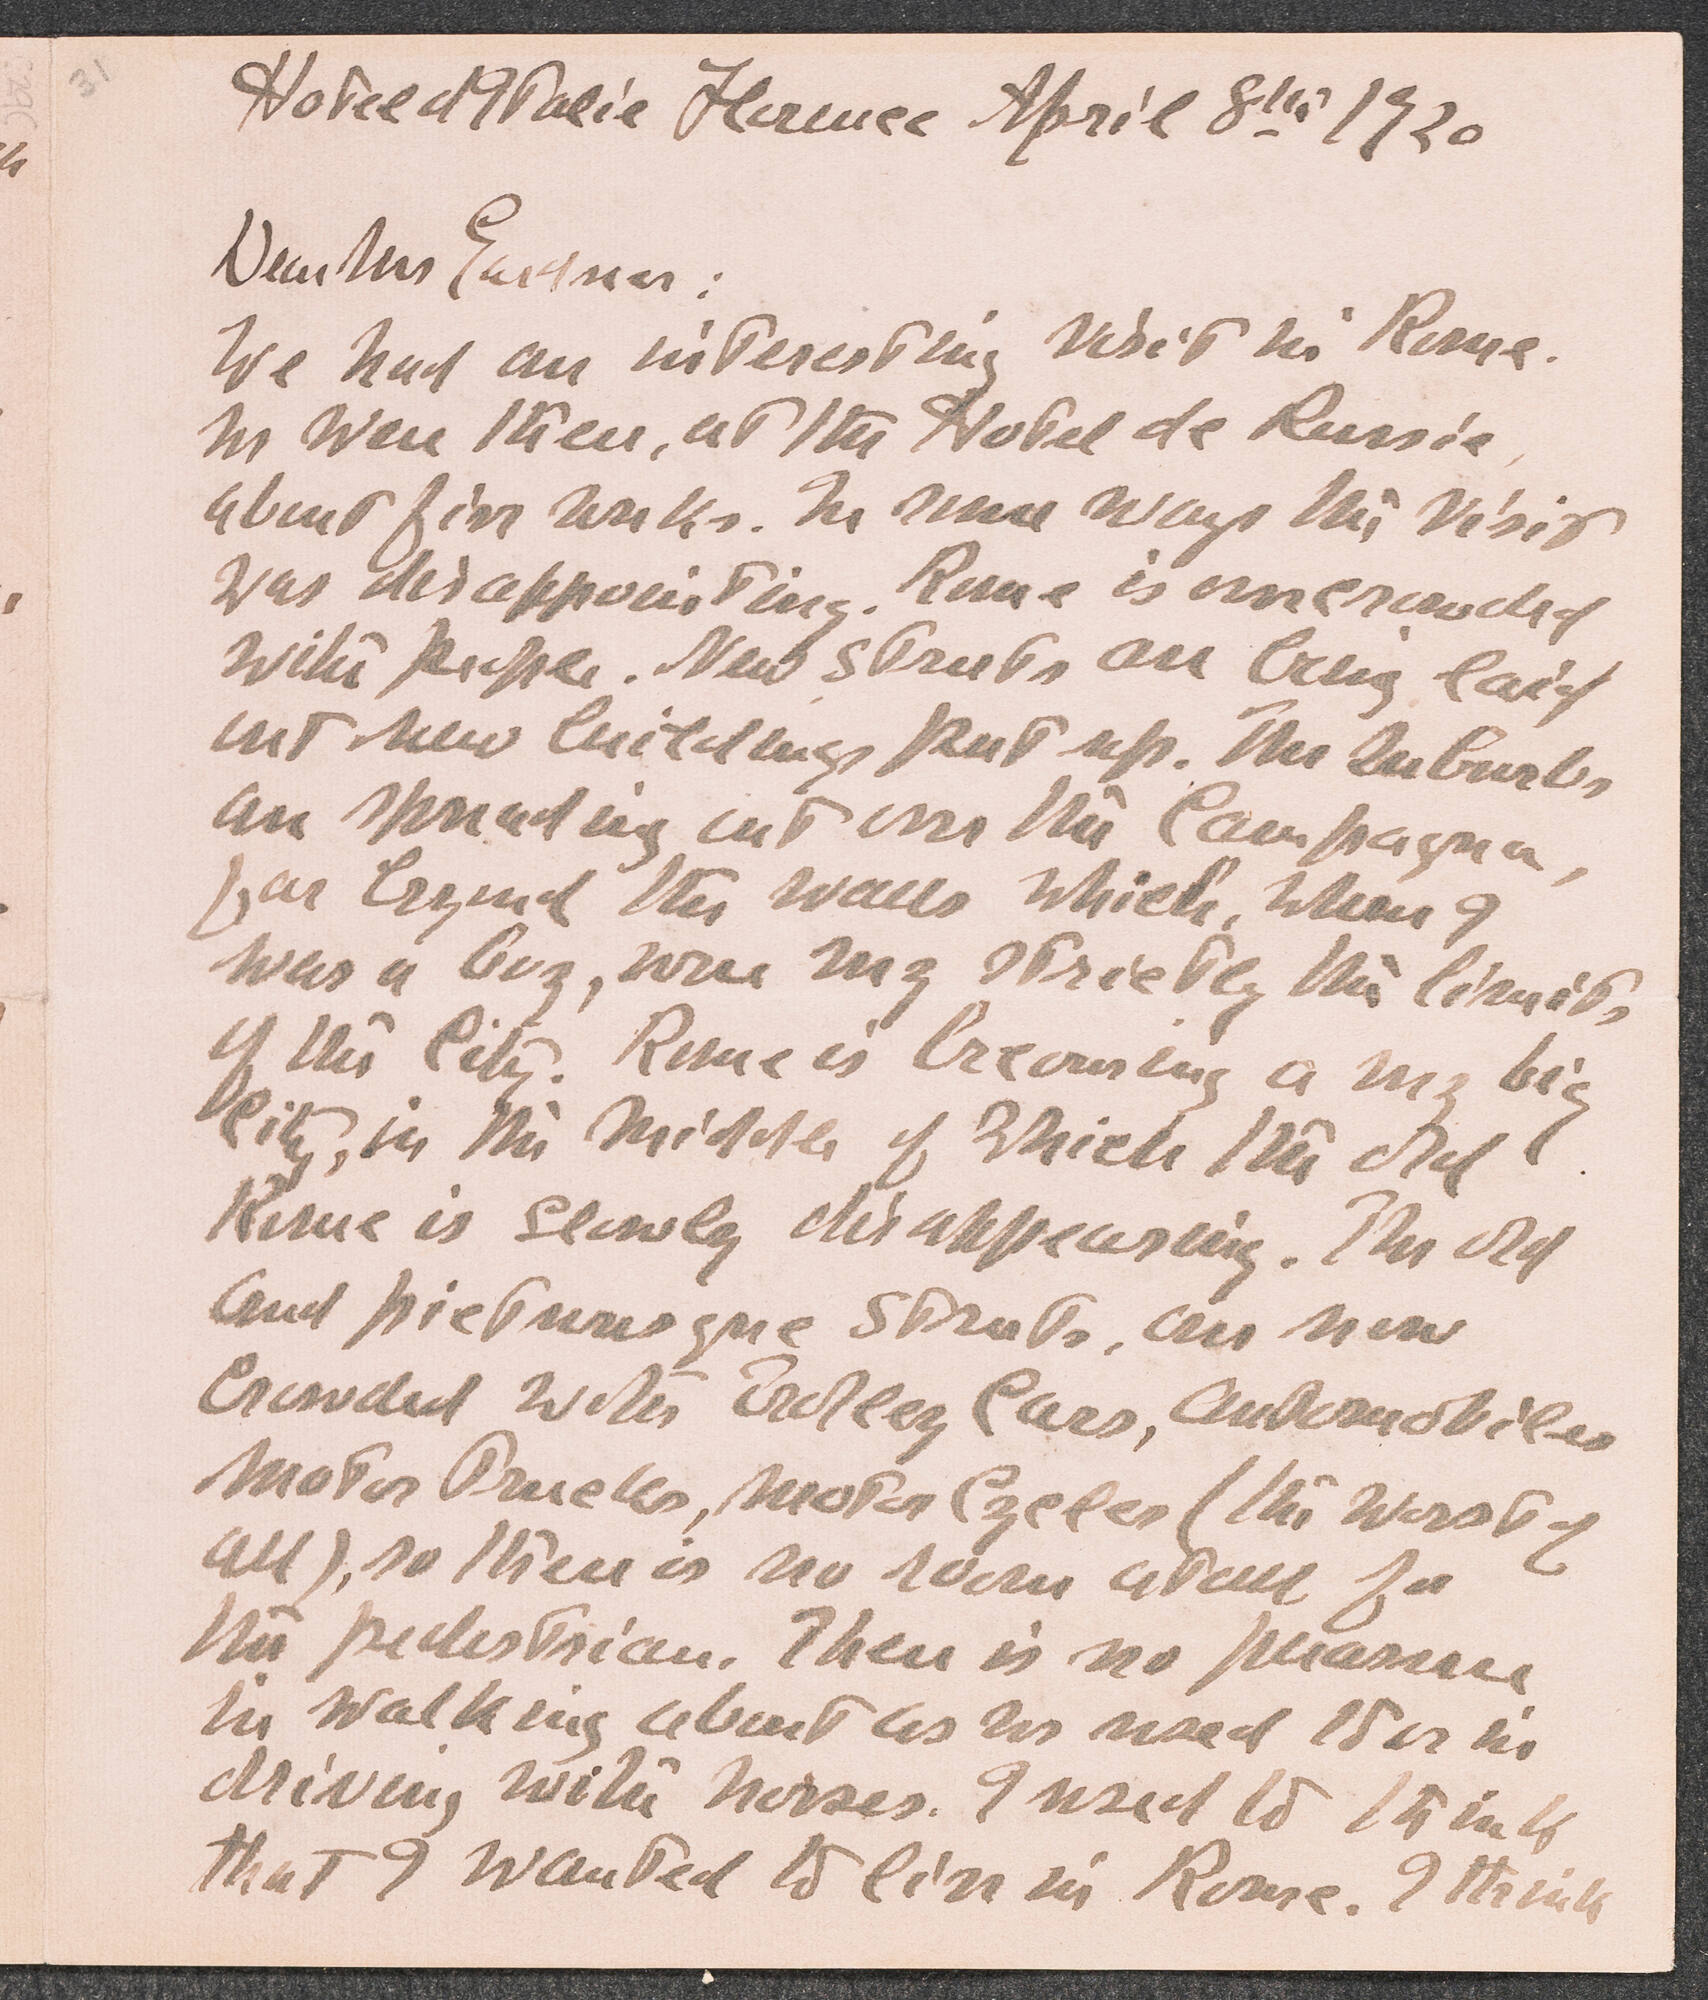 31
Hotel d'Italie Florence April 8th 1920
Dear Mrs Gardner:
We had an interesting visit in Rome.
We were there, at the Hotel de Russie,
about five weeks. In some ways the visit
was disappointing. Rome is overcrowded
with people. New streets are being laid
out new buildings put up. The suburbs
are spreading out over the Campagna,
far beyond the walls which, when I
was a boy, were very strictly the limits
of the City. Rome is becoming a very big
City, in the middle of which the old
Rome is slowly disappearing. The old
and picturesque streets, are now
crowded with trolley cars, automobiles
motor trucks, motor cycles (the worst of
all), so there is no room at all for
the pedestrian. There is no pleasure
in walking about as we used to or in
driving with horses. I used to think
that I wanted to live in Rome. I think